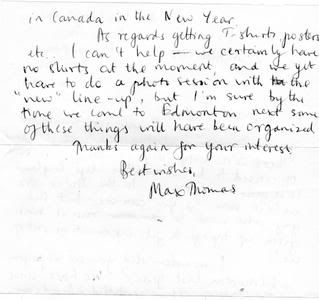 in Canada in the New Year.
As regards getting T-shirts, posters
etc.. I can't help — we certainly have
no shirts at the moment, and we yet
have to do a photo session with the
"new" line-up, but I'm sure by the
time we come to Edmonton next some
of these things will have been organized
Thanks again for your interest
Best wishes,
Max Thomas